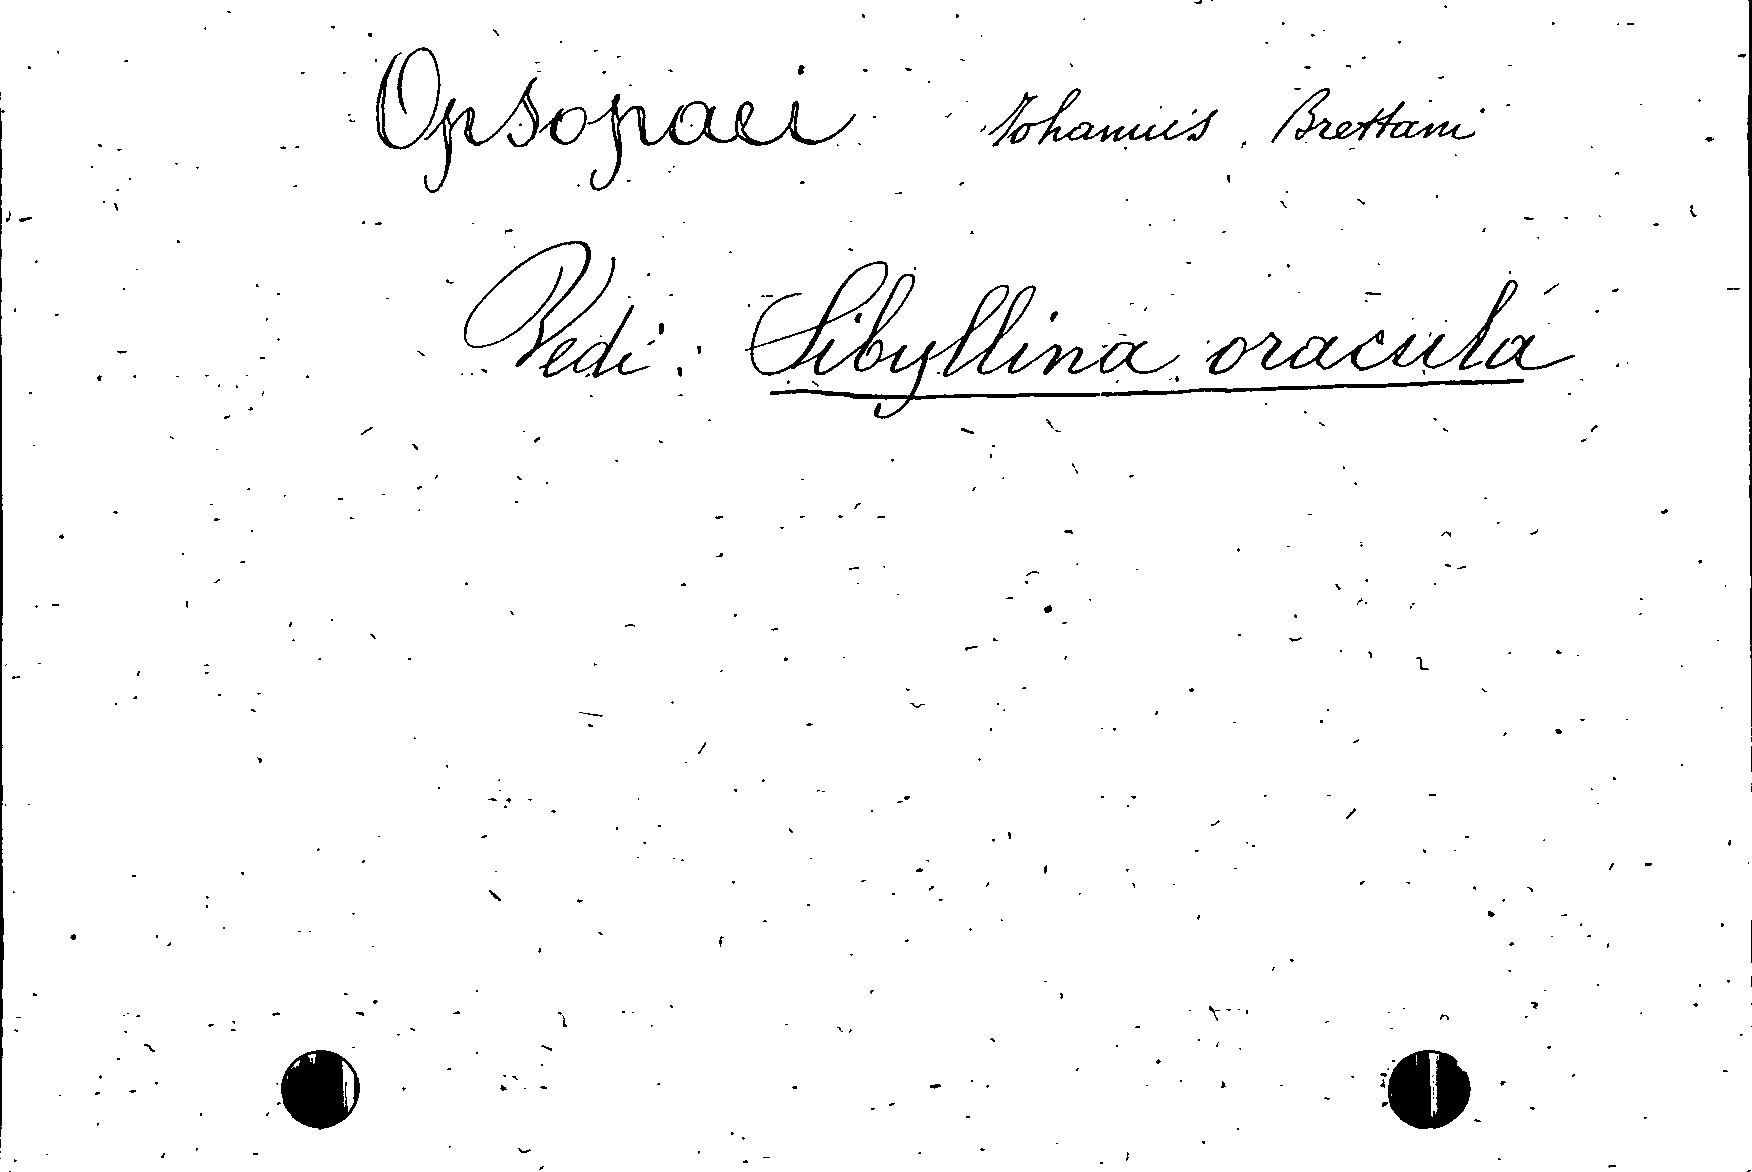 Opsopaei Iohannis Brettani
Vedi: Sibyllina oracula